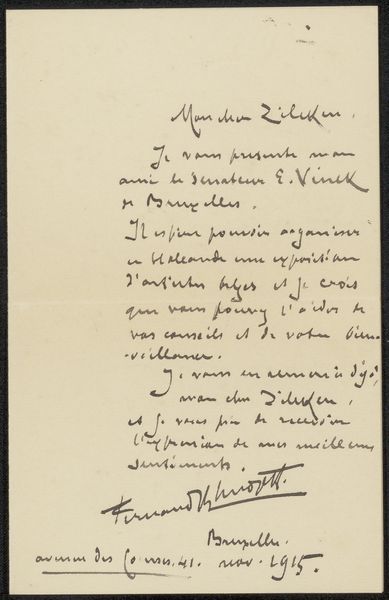 Mon cher Zilcken,
Je vous présente mon
ami le sénateur E. Vinck
de Bruxelles.
Il espère pouvoir organiser
en Hollande une exposition
d'artistes belges et je crois
que vous pouvez l'aider de
vos conseils et de votre bien-
-veillance.
Je vous en remercie déjà,
mon cher Zilcken,
et je vous prie de recevoir
l'expression de mes meilleurs
sentiments.
Fernand Khnopff.
Bruxelles.
avenue des Courses. 41. nov. 1915.